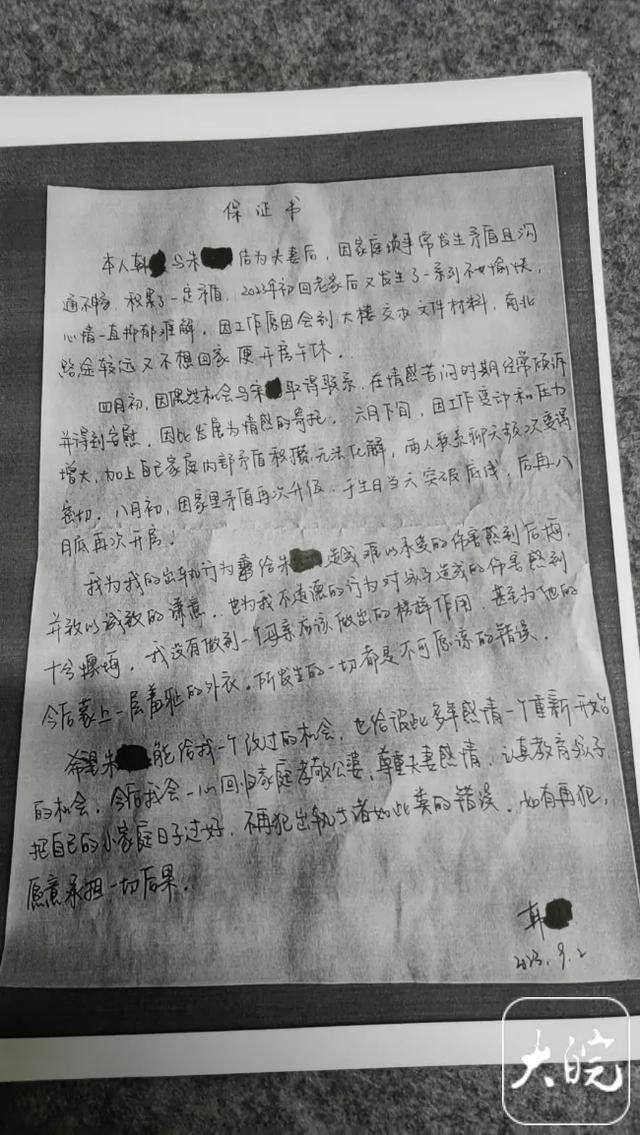 保证书
本人韩 与朱 结为夫妻后，因家庭琐事常发生矛盾且沟
通不畅，积累了一定矛盾，2023年初回老家后又发生了一系列不愉快，
心情一直抑郁难解，因工作原因会到大楼交办文件材料，南北
路途较远又不想回家便开房午休。
四月初，因偶然机会与宋 取得联系，在情感苦闷时期经常倾诉
并得到安慰，因此发展为情感的寄托。六月下旬，因工作变计和压力
增大，加上自己家庭内部矛盾积攒无法化解，两人联系聊天频次变得
密切。八月初，因家里矛盾再次升级，于生日当天突破底线，后再八
月底再次开房。
我为我的出轨行为 给朱 造成难以承受的伤害感到后悔，
并致以诚敬的谦意，也为我不道德的行为对孩子造成的伤害感到
十分懊悔，我没有做到一个母亲应该做出的榜样作用，甚至为他的
今后蒙上一层羞耻的外衣。所发生的一切都是不可原谅的错误。
希望朱 能给我一个改过的机会，也给彼此多年感情一个重新开始
的机会，今后我会一心回归家庭孝敬公婆，尊重夫妻感情，认真教育孩子，
把自己的小家庭日子过好，不再犯出轨或者如此类的错误，如有再犯，
愿意承担一切后果。
韩
2023.9.2
大皖